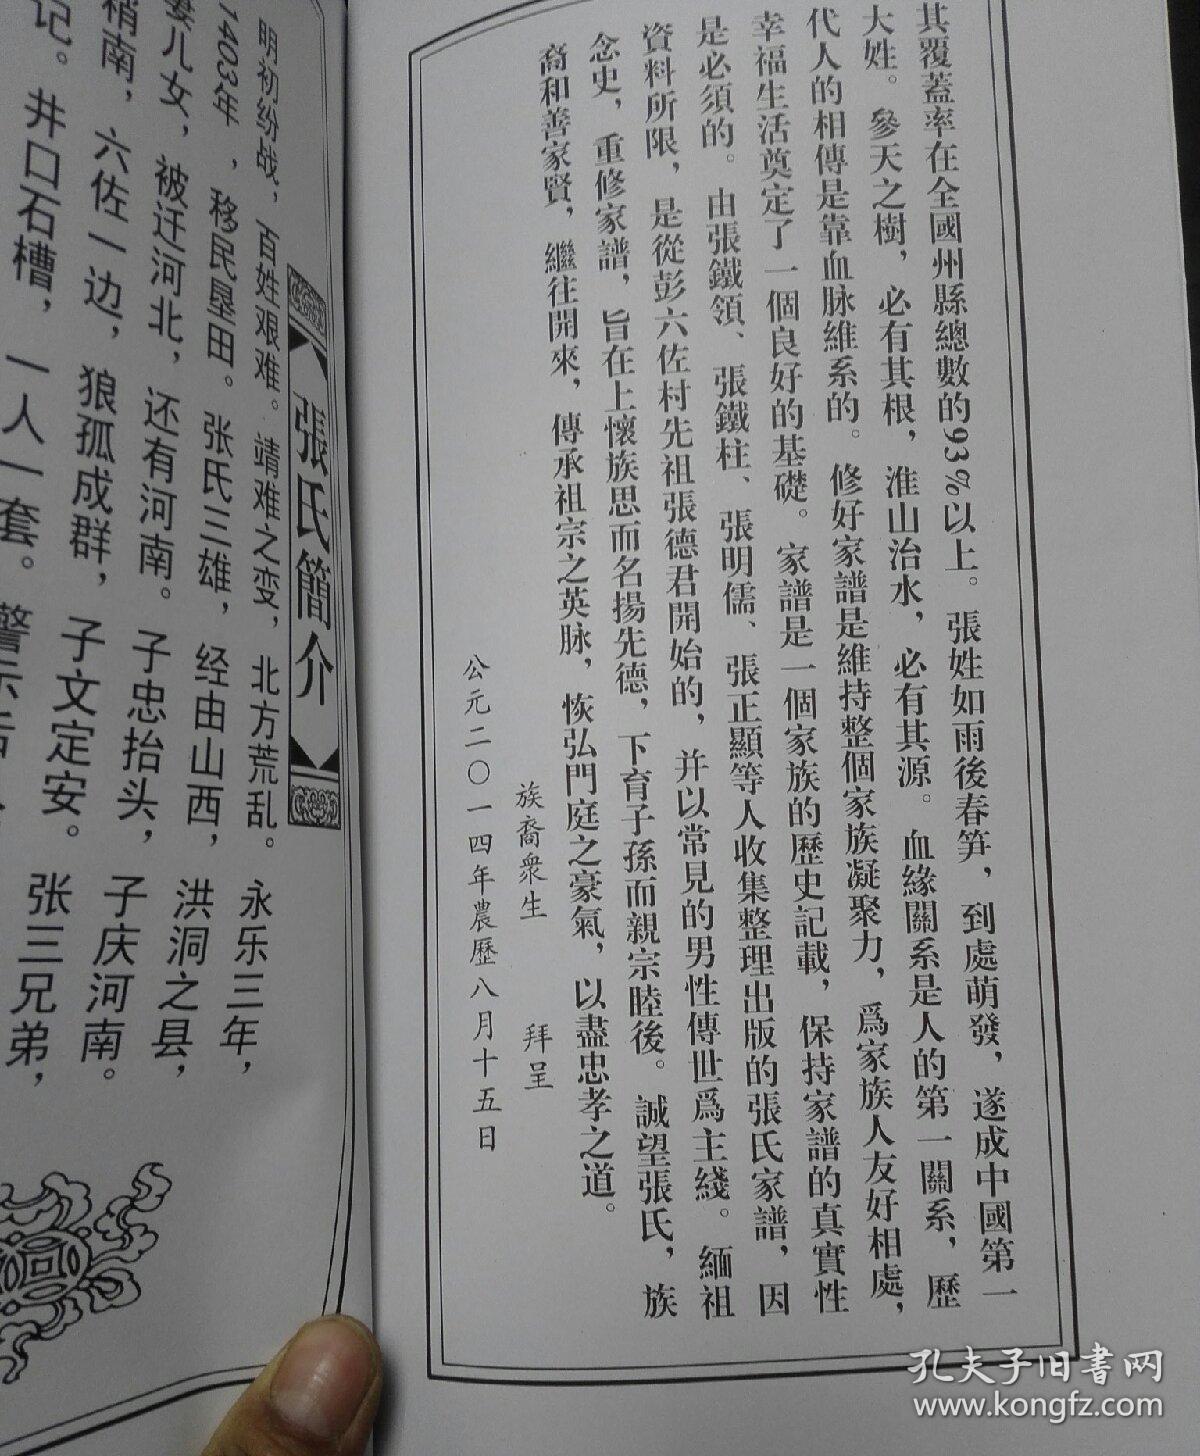 其覆蓋率在全國州縣總數的93%以上。張姓如雨後春笋，到處萌發，遂成中國第一
大姓。參天之樹，必有其根，淮山治水，必有其源。血緣關系是人的第一關系，歷
代人的相傳是靠血脉維系的。修好家譜是維持整個家族凝聚力，爲家族人友好相處，
幸福生活奠定了一個良好的基礎。家譜是一個家族的歷史記載，保持家譜的真實性
是必須的。由張鐵領、張鐵柱、張明儒、張正顯等人收集整理出版的張氏家譜，因
資料所限，是從彭六佐村先祖張德君開始的，并以常見的男性傳世爲主綫。緬祖
念史，重修家譜，旨在上懷族思而名揚先德，下育子孫而親宗睦後。誠望張氏，族
裔和善家賢，繼往開來，傳承祖宗之英脉，恢弘門庭之豪氣，以盡忠孝之道。
族裔衆生 拜呈
公元二〇一四年農歷八月十五日
張氏簡介
明初纷战，百姓艰难。靖难之变，北方荒乱。永乐三年，
1403年，移民垦田。张氏三雄，经由山西，洪洞之县，
妻儿女，被迁河北，还有河南。子忠抬头，子庆河南。
稍南，六佐一边，狼孤成群，子文定安。张三兄弟，
记。井口石槽，一人一套。警示后
孔夫子旧書网
www.kongfz.com